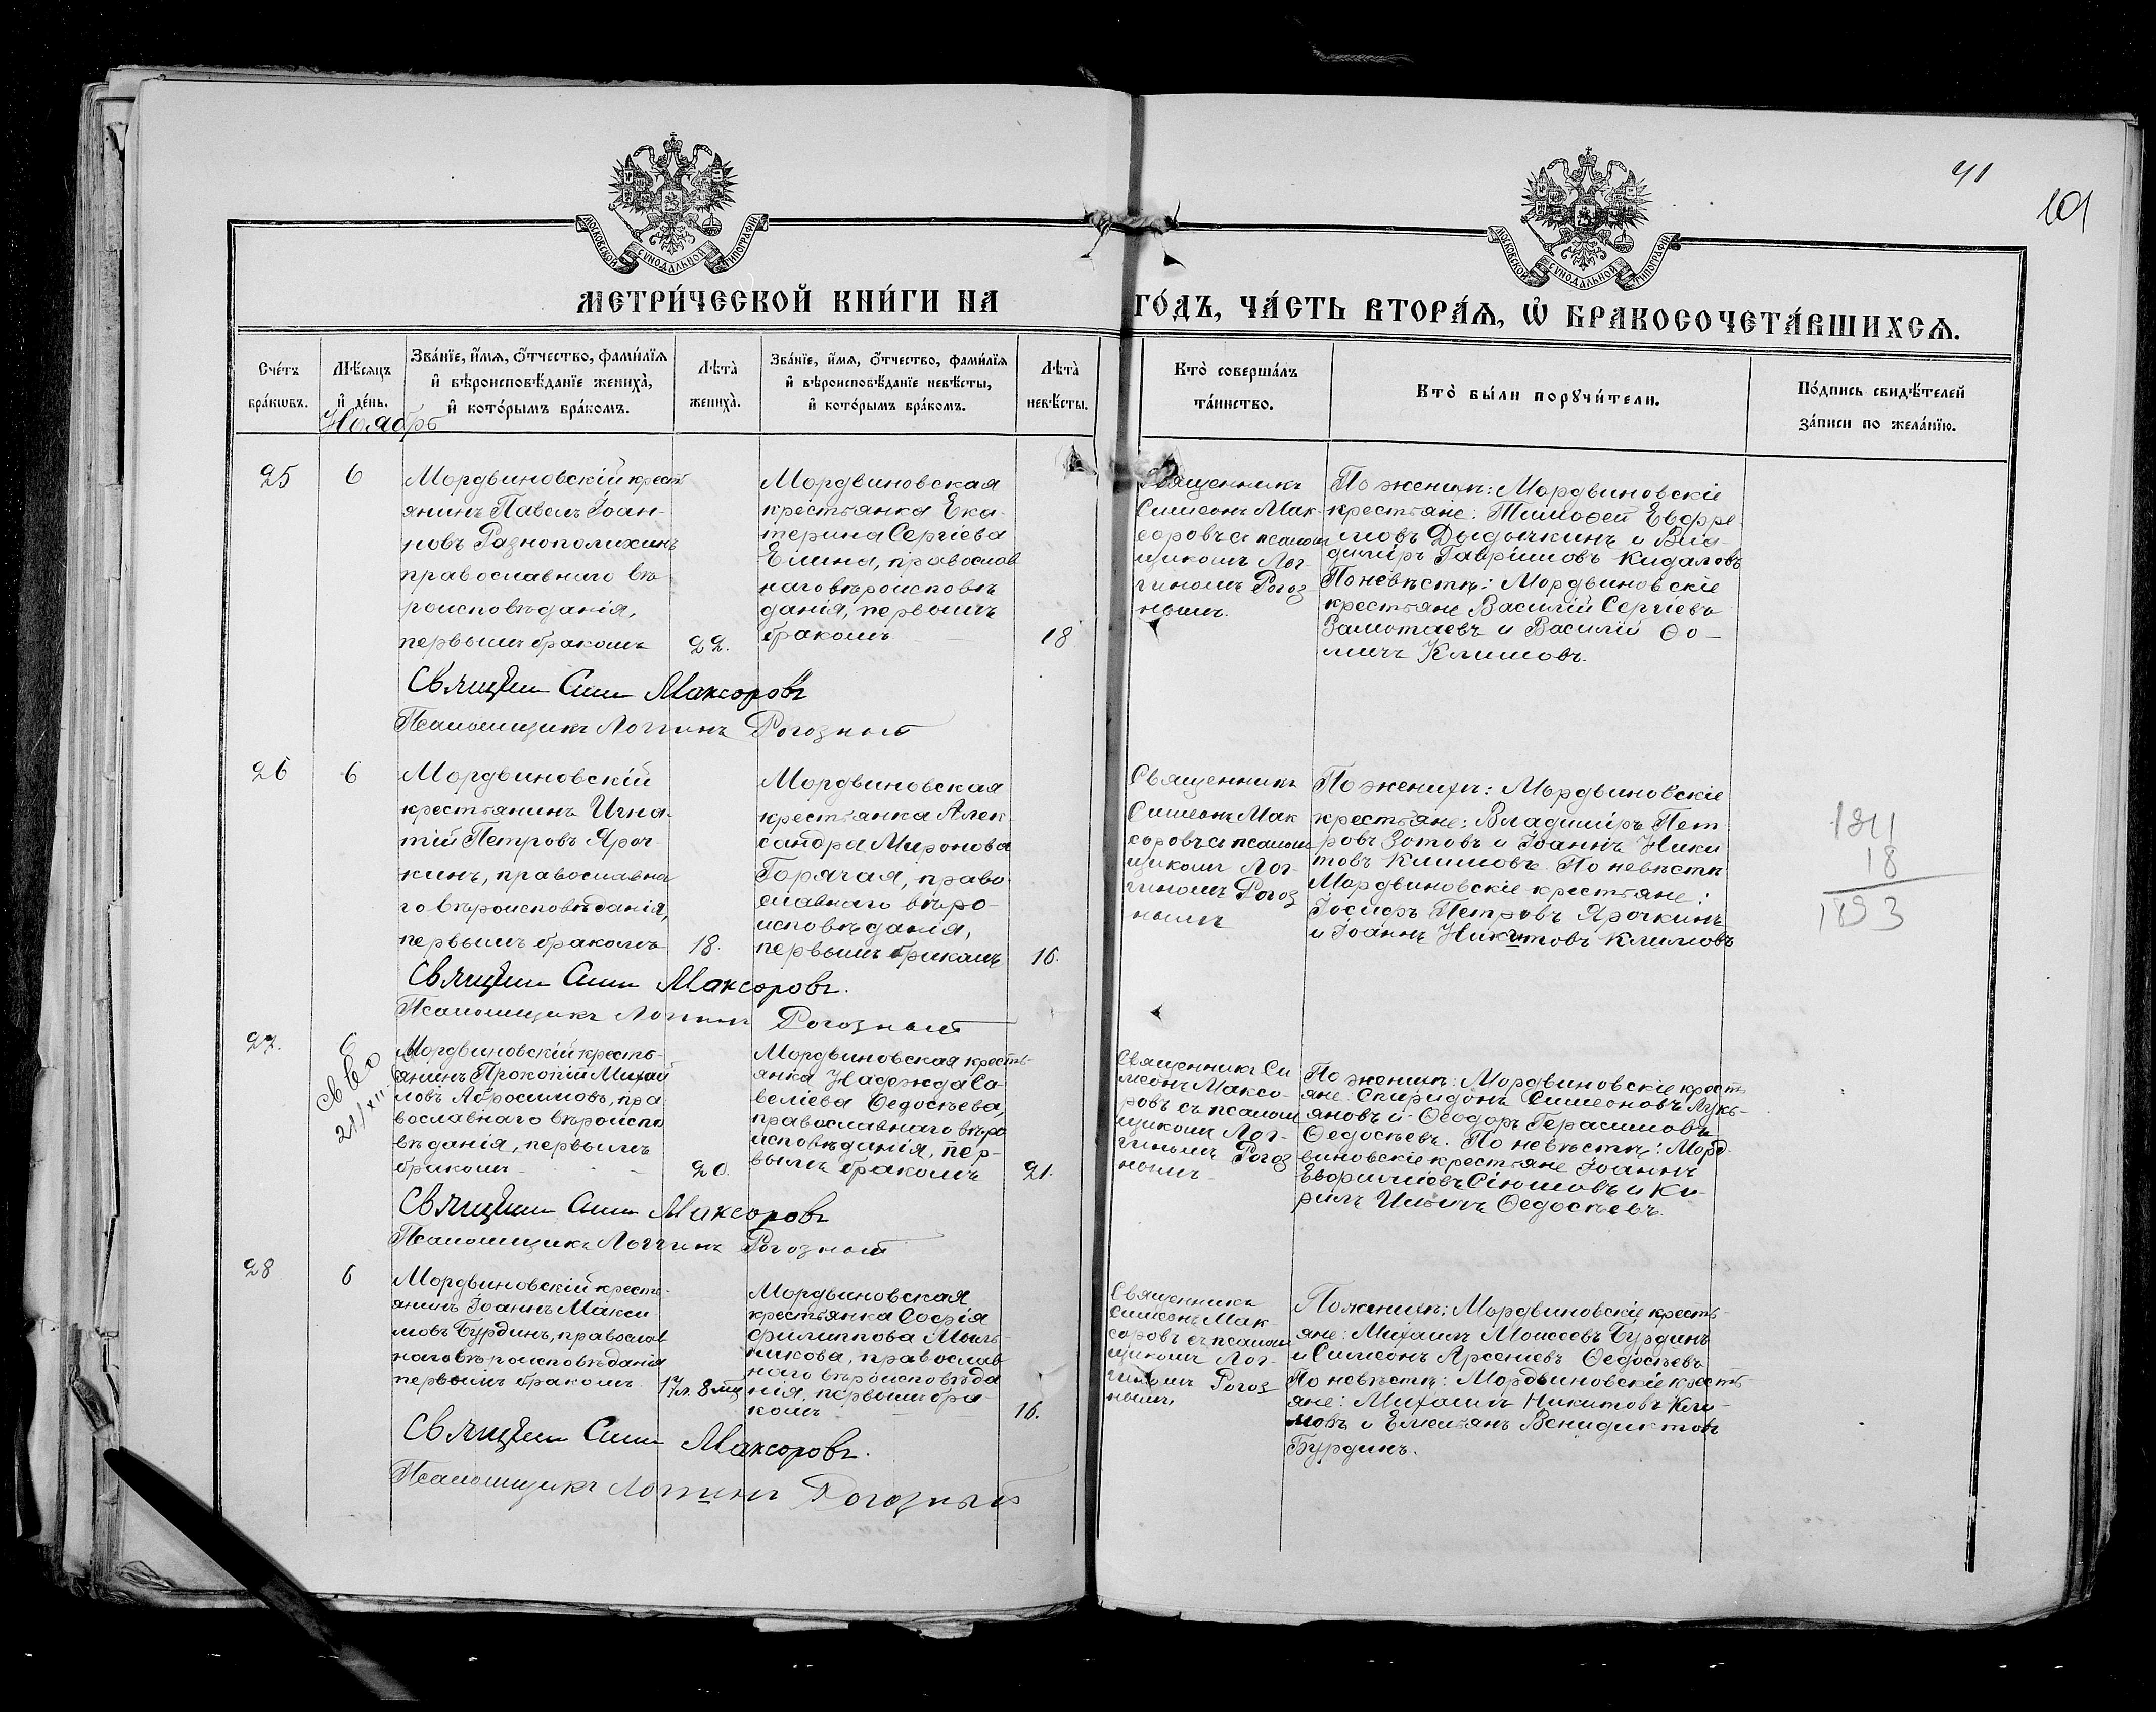 41
101
МОСКОВСКОЙ СѴНОДАЛЬНОЙ ТИПОГРАФІИ
МОСКОВСКОЙ СѴНОДАЛЬНОЙ ТИПОГРАФІИ
МЕТРИ́ЧЕСКОЙ КНИ́ГИ НА
ГО́ДЪ, ЧА́СТЬ ВТОРА́Ѧ, Ѡ҆ БРАКОСОЧЕТА́ВШИХСѦ.
Сче́тъ
бра́кѡвъ.
Мѣ́сяцъ
и҆ де́нь.
Ноябрь
Зва́нїе, и҆́мя, ѻ҆́тчество, фами́лїя
и҆ вѣроисповѣ́данїе жениха̀,
и҆ кото́рымъ бра́комъ.
Лѣта̀
жениха̀.
Зва́нїе, и҆́мя, ѻ҆́тчество, фами́лїя
и҆ вѣроисповѣ́данїе невѣ́сты,
и҆ кото́рымъ бра́комъ.
Лѣта̀
невѣ́сты.
Кто̀ соверша́лъ
та́инство.
Кто̀ бы́ли порꙋчи́тели.
По́дпись свидѣ́телей
за́писи по жела́нїю.
25
6
Мордвиновскій крестъ
янинъ Павелъ Іоан-
новъ Разнополихинъ
православнаго вѣ
роисповѣданія,
первымъ бракомъ
22.
Мордвиновская
крестьянка Ека-
терина Сергіева
Елина, православ
наго вѣроисповѣ
данія, первымъ
бракомъ
18
Священникъ
Симеонъ Мак-
соровъ съ псалом
щикомъ Лог-
гиномъ Рогоз
нымъ.
По женихѣ: Мордвиновскіе
крестьяне: Тимофей Евфре-
мовъ Дыдычкинъ и Вла-
димiръ Гавріиловъ Кидаловъ
По невѣстѣ: Мордвиновскіе
крестьяне Василій Сергіевъ
Замотаевъ и Василій Ѳо-
мичъ Климовъ.
Священ Сим Максоровъ
Псаломщикъ Логгинъ Рогозный
26
6
Мордвиновскій
крестьянинъ Игна-
тій Петровъ Яроч-
кинъ, православна
го вѣроисповѣданія,
первымъ бракомъ
18.
Мордвиновская
крестьянка Алек
сандра Миронова
Горячая, право
славнаго вѣро-
исповѣданія,
первымъ бракомъ
16.
Священникъ
Симеонъ Мак
соровъ съ псалом
щикомъ Лог-
гиномъ Рогоз
нымъ
По женихѣ: Мордвиновскіе
крестьяне: Владиміръ Пет
ровъ Зотовъ и Іоаннъ Ники
товъ Климовъ. По невѣстѣ
Мордвиновскіе крестьяне:
Іосифъ Петровъ Ярочкинъ
и Іоаннъ Никитовъ Климовъ
1911
18
1893
Священ Сим Максоровъ.
Псаломщикъ Логгинъ Рогозный
27.
6
21/XII
Мордвиновскій кресть-
янинъ Прокопій Михай
ловъ Абросимовъ, пра
вославнаго вѣроиспо
вѣданія, первымъ
бракомъ
20
Мордвиновская кресть-
янка Надежда Са-
веліева Ѳедосѣева,
православнаго вѣро
исповѣданія, пер-
вымъ бракомъ
21.
Священникъ Си
меонъ Максо-
ровъ съ псалом
щикомъ Лог-
гиномъ Рогоз
нымъ
По женихѣ: Мордвиновскіе кресть
яне: Спиридонъ Симеоновъ Лукь-
яновъ и Ѳеодоръ Герасимовъ
Ѳедосѣевъ. По невѣстѣ: Морд-
виновскіе крестьяне Іоаннъ
и Ки-
рилъ Ильичъ Ѳедосѣевъ.
Священ Сим Максоровъ
Псаломщикъ Логгинъ Рогозный
28
6
Мордвиновскій кресть-
янинъ Іоаннъ Макси
мовъ Бурдинъ, православ
наго вѣроисповѣданія
первымъ бракомъ
17 л. 8 мц
Мордвиновская
крестьянка Софія
Филиппова Мыль-
никова, православ
наго вѣроисповѣда
нія, первымъ бра-
комъ
16.
Священникъ
Симеонъ Мак-
соровъ съ псалом
щикомъ Лог-
гиномъ Рогоз
нымъ
По женихѣ: Мордвиновскіе кресть-
яне: Михаилъ Моисеевъ Бурдинъ
и Симеонъ Арсеніевъ Ѳедосѣевъ
По невѣстѣ: Мордвиновскіе кресть-
яне: Михаилъ Никитовъ Кли-
мовъ и Емельянъ Венидиктовъ
Бурдинъ.
Священ Сим Максоровъ.
Псаломщикъ Логгинъ Рогозный